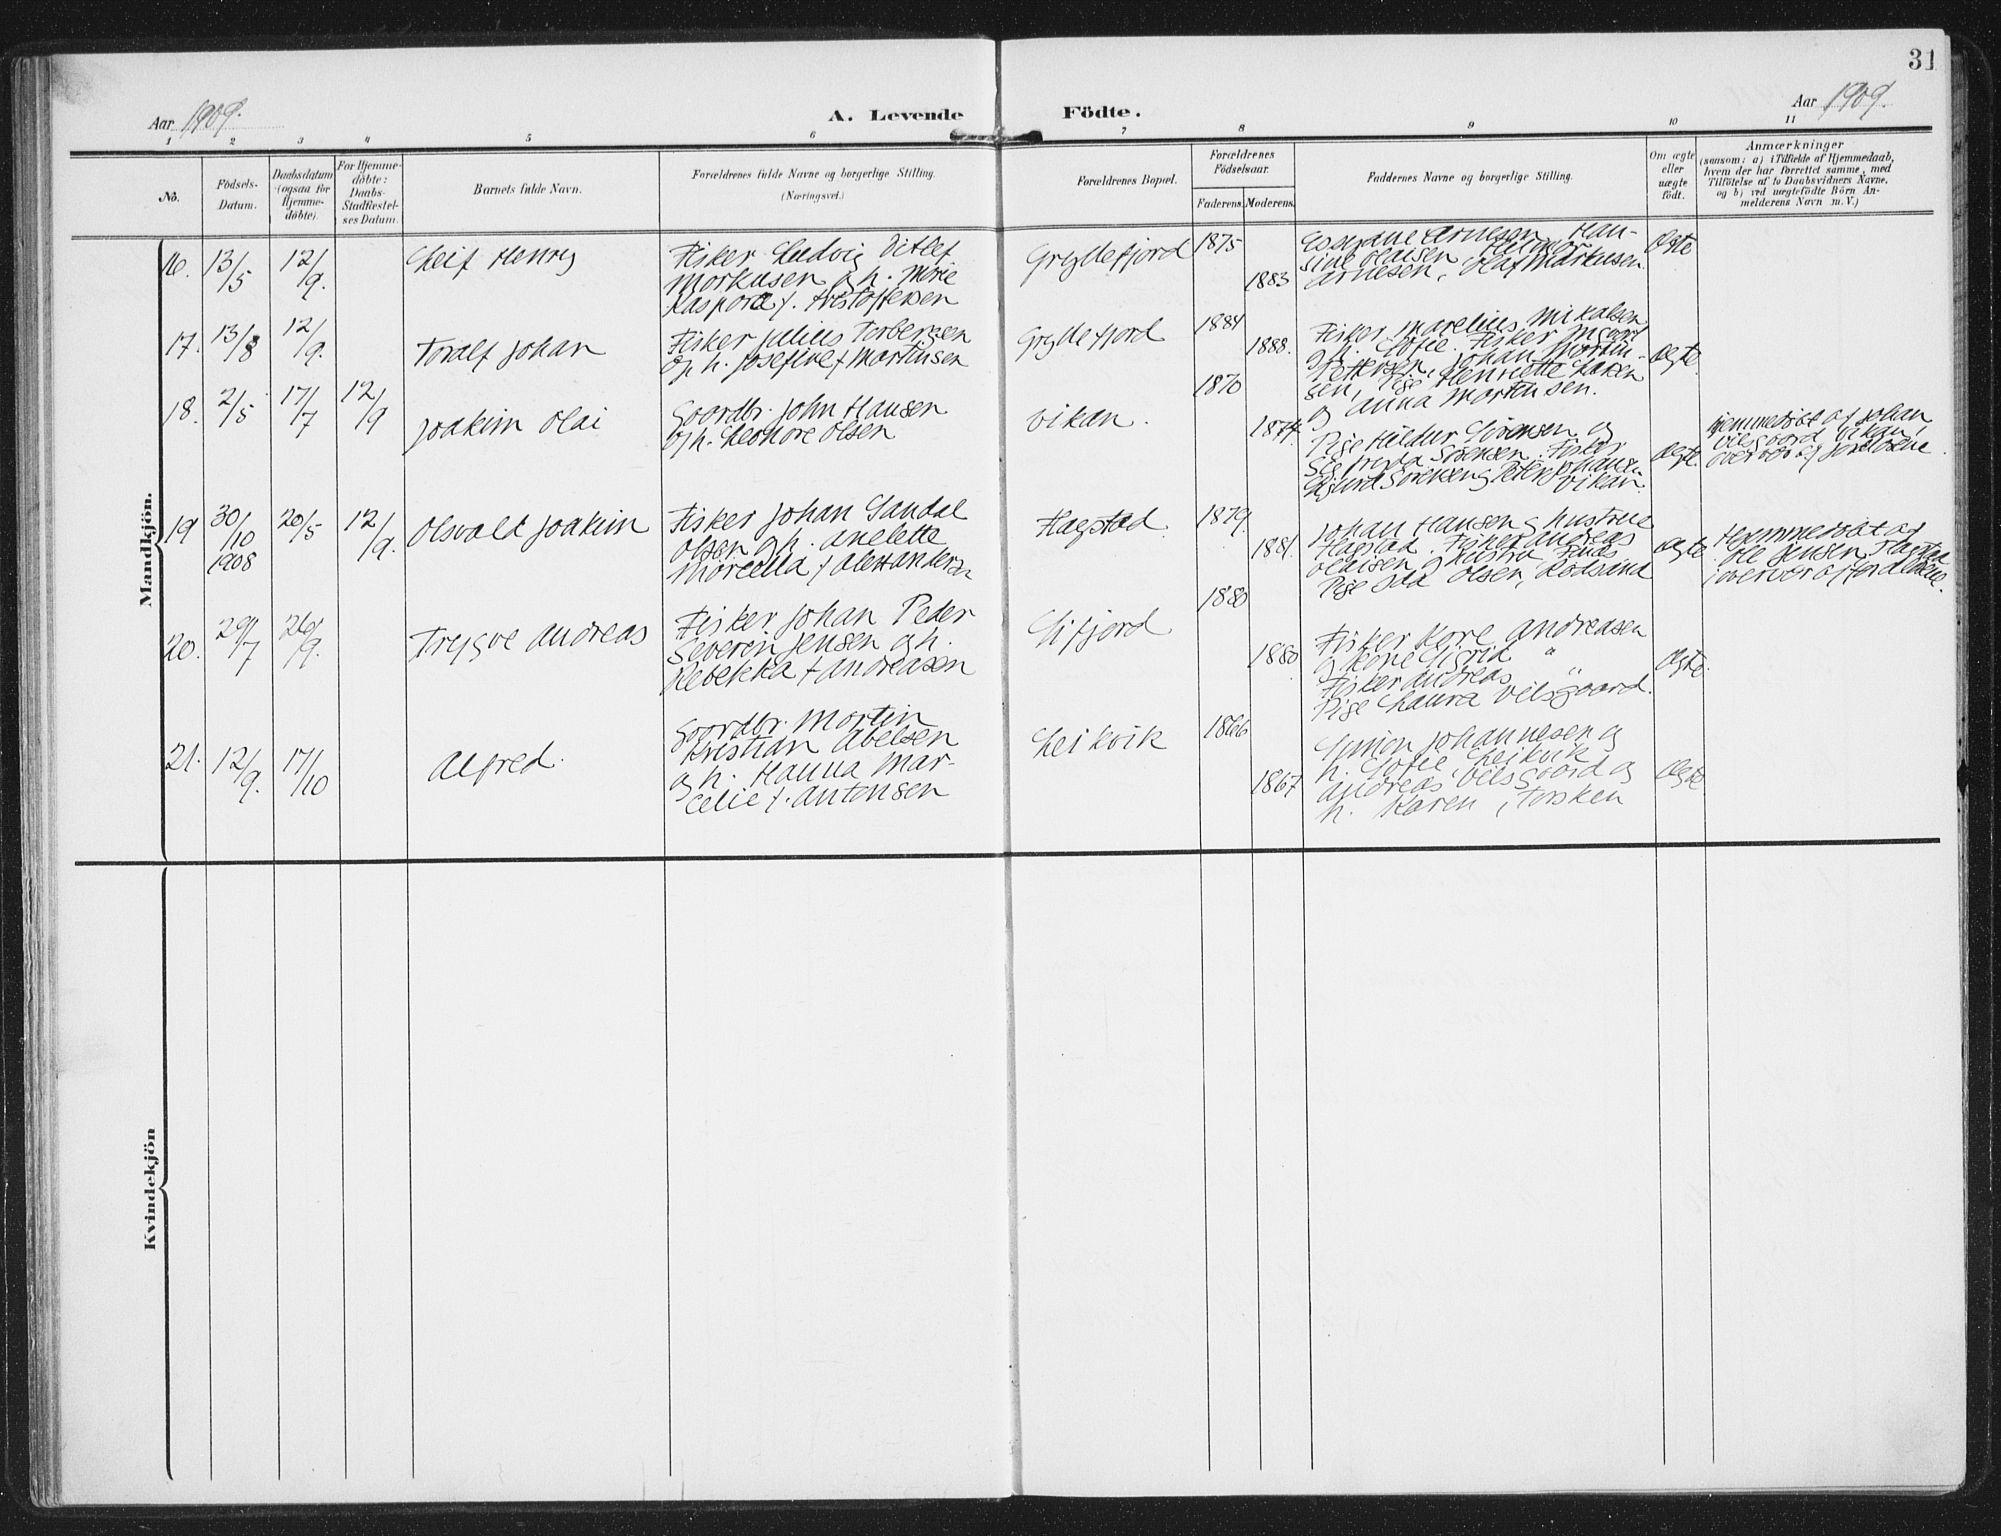 31
Aar 1909.
A. Levende Födte.
Aar 1909.
1 2 3 4 5 6 7 8 9 10 11
No.
Födsels-
Datum.
Daabsdatum
(ogsaa for
Hjemme-
döbte).
For Hjemme-
döbte:
Daabs-
Stadfæstel-
ses Datum.
Barnets fulde Navn.
Forældrenes fulde Navne og borgerlige Stilling.
(Næringsvei.)
Forældrenes Bopæl.
Forældrenes
Födselsaar.
Faderens. Moderens.
Faddernes Navne og borgerlige Stilling.
Om ægte
eller
uægte
födt.
Anmærkninger
(saasom: a) i Tilfælde af Hjemmedaab,
hvem der har forrettet samme, med
Tilföielse af to Daabsvidners Navne,
og b) ved uægtefödte Börn An-
melderens Navn m. V.)
Mandkjön.
16. 13/5 12/9.
Leif Henry
Fisker Ludvig Ditlef
Markusen og h. Marie
Kaspara f. Kristoffersen
Gryllefjord
1875
1883
Arnesen, Han-
sine Olaisen, Hilmar
Arnesen, Olaf Markusen.
Ægte
17. 13/8 12/9.
Toralf Johan
Fisker Julius Torbergsen
og h. Josefine f. Martinsen
Gryllefjord
1884
1888.
Fisker Marelius Mikalsen
og h. Sofie. Fisker
Pettersen, Johan Martin-
sen, Pige Henriette
og Anna Mortensen.
Ægte.
18. 2/5 17/7 12/9
Joakim Olai
Gaardbr. John Hansen
og h. Leonore Olsen
Vikan.
1870
1874.
Pige Hildur Sörensen og
Sigfryda Sörensen. Fisker
Sigurd Sörensen og Peter Johansen
Vikan.
Ægte.
Hjemmedöbt af Johan
Vilsgaard, Vikan,
overvær af forældrene.
19 30/10 1908 20/5 12/9.
Olsvald Joakim
Fisker Johan Sandal
Olsen og h. Anelette
Marcella f. Aleksandersen
Flagstad
1879.
1881.
Johan Hansen og hustrue
Flagstad. Fisker Andreas
Olaisen og hustru
Pige Ida Olsen, Rödsand
Ægte
Hjemmedöbt af
Ole Jensen, Flagstad
i overvær af forældrene.
20. 29/7 26/9.
Trygve Andreas
Fisker Johan Peder
Severin Jensen og h.
Rebekka f. Andreasen
Sifjord
1880
1880
Fisker Kore Andreasen
og Kone Sigrid "
Fisker Andreas "
Pige Laura Vilsgaard.
Ægte.
21. 12/9. 17/10
Alfred.
Gaardbr. Martin
Kristian Abelsen
og h. Hanna Mar-
celie f. Antonsen
Leikvik
1866
1867
Simon Johannesen og
h. Sofie, Leikvik
Andreas Vilsgaard og
h. Karen, Torsken
Ægte
Kvindekjön